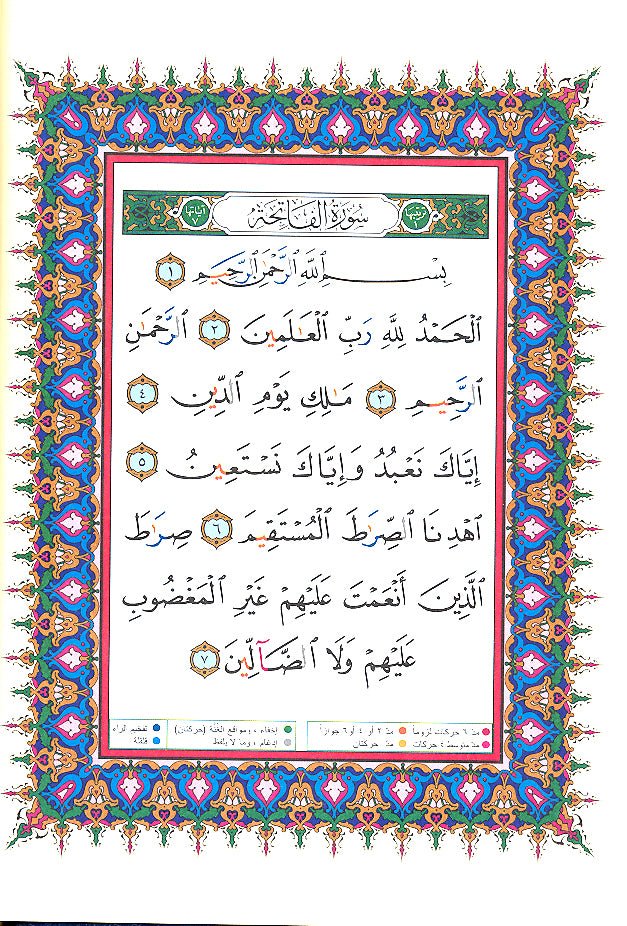 ترتيبها ١ سُورَةُ الفَاتِحَة آياتها ٧
بِسْمِ ٱللَّهِ ٱلرَّحْمَٰنِ ٱلرَّحِيمِ ١
ٱلْحَمْدُ لِلَّهِ رَبِّ ٱلْعَٰلَمِينَ ٢ ٱلرَّحْمَٰنِ
ٱلرَّحِيمِ ٣ مَٰلِكِ يَوْمِ ٱلدِّينِ ٤
إِيَّاكَ نَعْبُدُ وَإِيَّاكَ نَسْتَعِينُ ٥
ٱهْدِنَا ٱلصِّرَٰطَ ٱلْمُسْتَقِيمَ ٦ صِرَٰطَ
ٱلَّذِينَ أَنْعَمْتَ عَلَيْهِمْ غَيْرِ ٱلْمَغْضُوبِ
عَلَيْهِمْ وَلَا ٱلضَّآلِّينَ ٧
مدّ ٦ حركات لزوماً مدّ ٢ أو ٤ أو ٦ جوازاً إخفاء ، ومواقع الغُنَّة (حركتان) تفخيم الراء
مدّ متوسط ٤ حركات مدّ حركتان إدغام ، وما لا يلفظ قلقلة